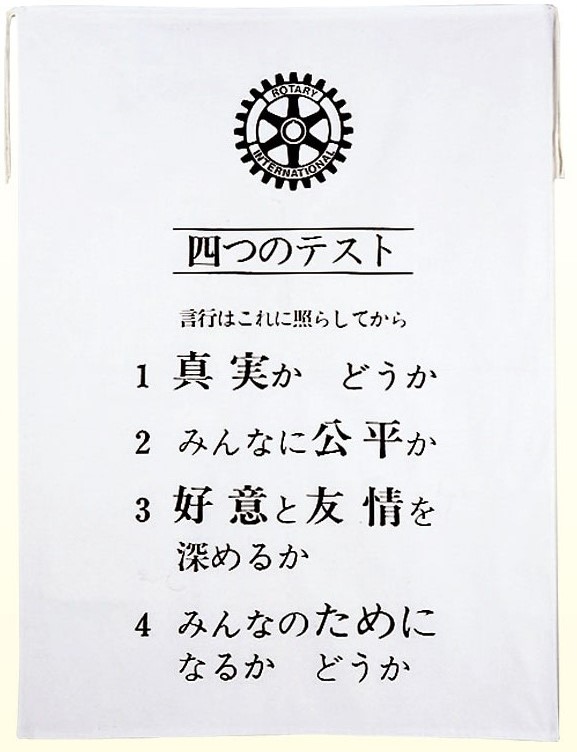 ROTARY
INTERNATIONAL
四つのテスト
言行はこれに照らしてから
1 真実か　どうか
2 みんなに公平か
3 好意と友情を
深めるか
4 みんなのために
なるか　どうか